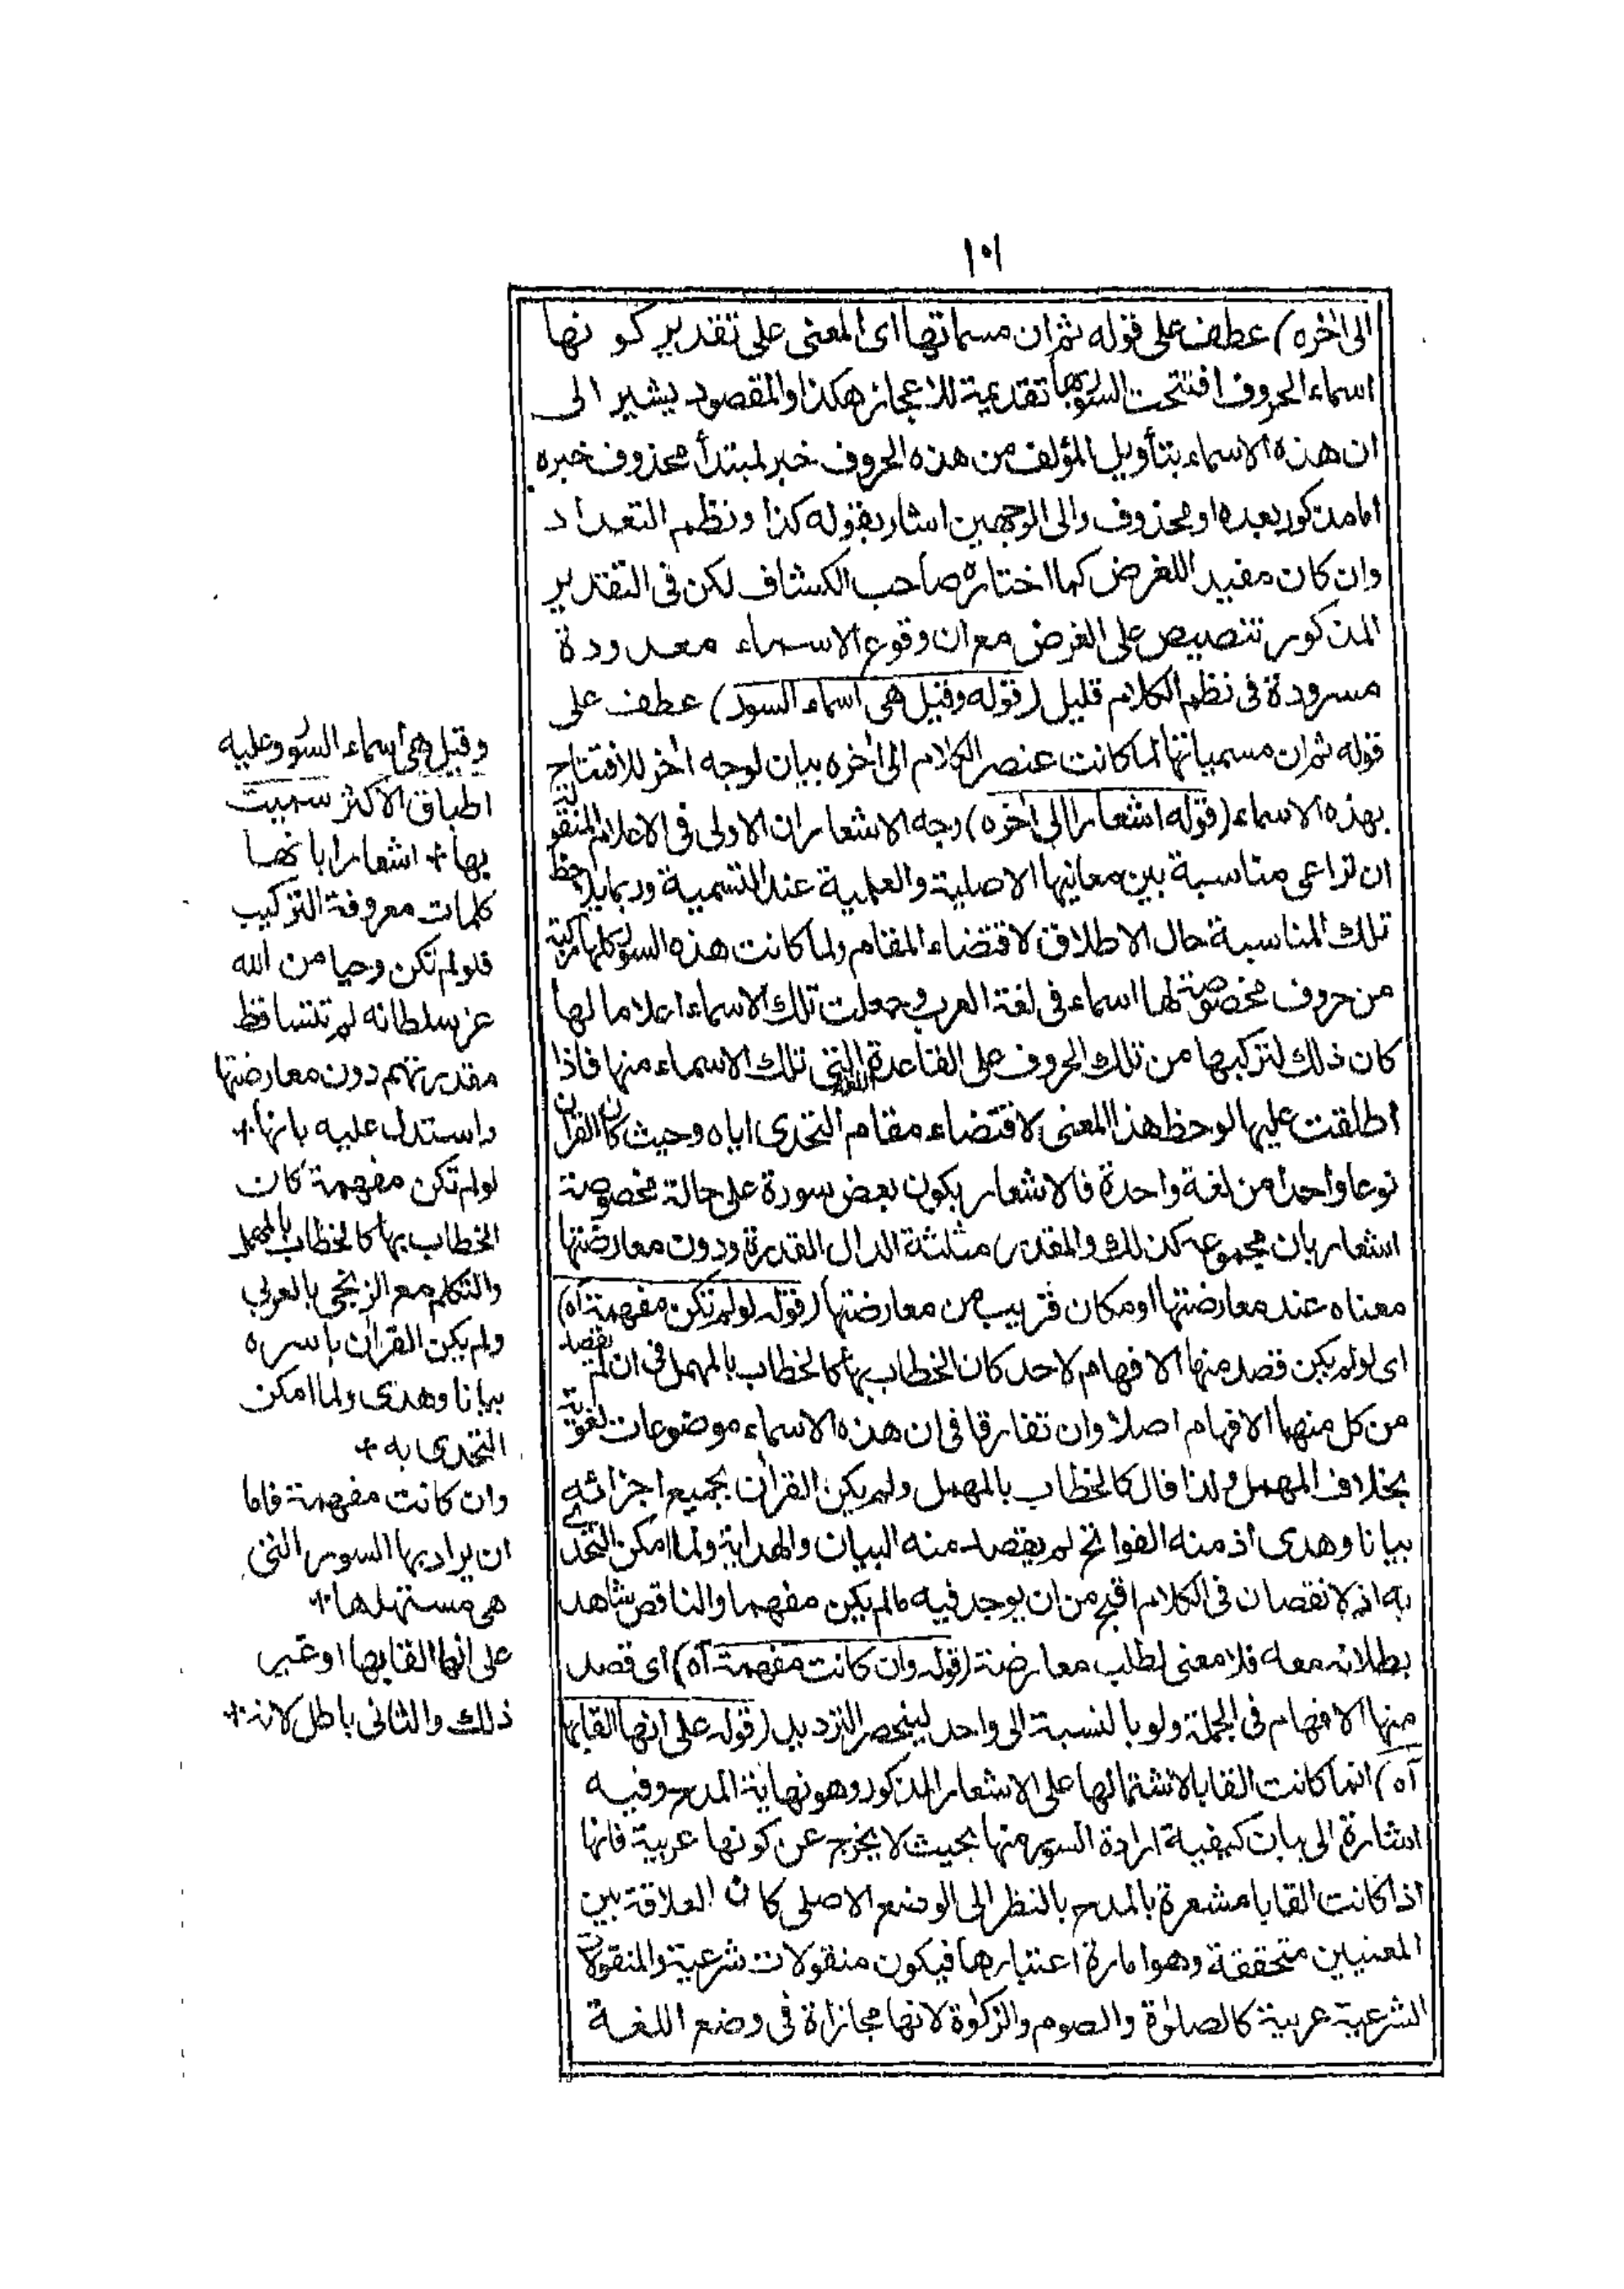 ١٠١
الى اٰخره) عطف على قوله ثم ان مسماتها اى المعنى على تقدير كو نها
اسماء الحروف افتتحت السور بها تقدمة للاعجاز هكذا والمقصود يشير الى
ان هذه الاسماء بتأويل المؤلف من هذه الحروف خبر لمبتدأ محذوف خبره
اما مذكور بعده او محذوف والى الوجهين اشار بقوله كذا ونظم التعداد
وان كان مفيد اللغرض كما اختاره صاحب الكشاف لكن فى التقدير
المذكور تنصيص على الغرض مع ان وقوع الاسماء معدودة
مسرودة فى نظم الكلام قليل (قوله وقيل هى اسماء السور) عطف على
قوله ثم ان مسمياتها لما كانت عنصر الكلام الى اٰخره بيان لوجه اٰخر للافتتاح
بهذه الاسماء (قوله اشعارا الى اٰخره) وجه الاشعار ان الاولى فى الاعلام المنقولة
ان تراعى مناسبة بين معانيها الاصلية والعلمية عند التسمية وربما يلاحظ
تلك المناسبة حال الاطلاق لاقتضاء المقام ولما كانت هذه السور كلها مركبة
من حروف مخصوصة لها اسماء فى لغة العرب وجعلت تلك الاسماء اعلاما لها
كان ذلك لتركبها من تلك الحروف على القاعدة التى تلك الاسماء منها فاذا
اطلقت عليها لوحظ هذا المعنى لاقتضاء مقام التحدى اياه وحيث كان القراٰن
نوعا واحدا من لغة واحدة فالاشعار بكون بعض سورة على حالة مخصوصة
اشعار بان مجموعه كذلك والمقدرة مثلثة الدال القدرة ودون معارضتها
معناه عند معارضتها او مكان قريب من معارضتها (قوله لو لم تكن مفهمة اٰه)
اى لو لم يكن قصد منها الافهام لاحد كان الخطاب بها كالخطاب بالمهمل فى ان لم يقصد
من كل منهما الافهام اصلا وان تفارقا فى ان هذه الاسماء موضوعات لغوية
بخلاف المهمل ولذا قال كالخطاب بالمهمل ولم يكن القراٰن بجميع اجزائه
بيانا وهدى اذ منه الفواتح لم يقصد منه البيان والهداية ولما امكن التحدى
به اذ لا نقصان فى الكلام اقبح من ان يوجد فيه مالم يكن مفهما والناقص شاهد
بطلانه معه فلا معنى لطلب معارضة (قوله وان كانت مفهمة اٰه) اى قصد
منها الافهام فى الجملة ولو بالنسبة الى واحد لينحصر الترديد (قوله على انها القابها
اٰه) انما كانت القابا لاشتمالها على الاشعار المذكور وهو نهاية المدح وفيه
اشارة الى بيان كيفية ارادة السور منها بحيث لا يخرج عن كونها عربية فانها
اذا كانت القابا مشعرة بالمدح بالنظر الى الوضع الاصلى كان العلاقة بين
المعنيين متحققة وهو امارة اعتبارها فيكون منقولات شرعية والمنقولات
الشرعية عربية كالصلوٰة والصوم والزكوٰة لانها مجازاة فى وضع اللغة
وقيل هى أسماء السور وعليه
اطباق الاكثر سميت
بها + اشعارا بانها
كلمات معروفة التركيب
فلو لم تكن وحيا من الله
عز سلطانه لم تتساقط
مقدرتهم دون معارضتها
واستدل عليه بانها+
لو لم تكن مفهمة كان
الخطاب بها كالخطاب بالمهمل
والتكلم مع الزنجى بالعربى
ولم يكن القراٰن باسره
بيانا وهدى ولما امكن
التحدى به +
وان كانت مفهمة فاما
ان يراد بها السور التى
هى مستهلها+
على انها القابها او غير
ذلك والثانى باطل لانه+